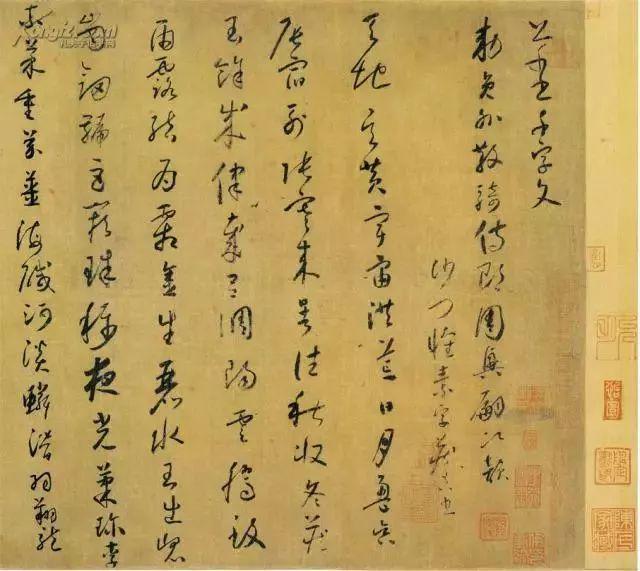 千字文
勅員外散騎侍郎周興嗣次韻
沙門懷素字藏真
天地玄黃宇宙洪荒日月盈昃
辰宿列張寒來暑往秋收冬藏
閏餘成歲律呂調陽雲騰致
雨露結為霜金生麗水玉出崐
崗劍號巨闕珠稱夜光菓珍李
柰菜重芥薑海鹹河淡鱗潛羽翔龍